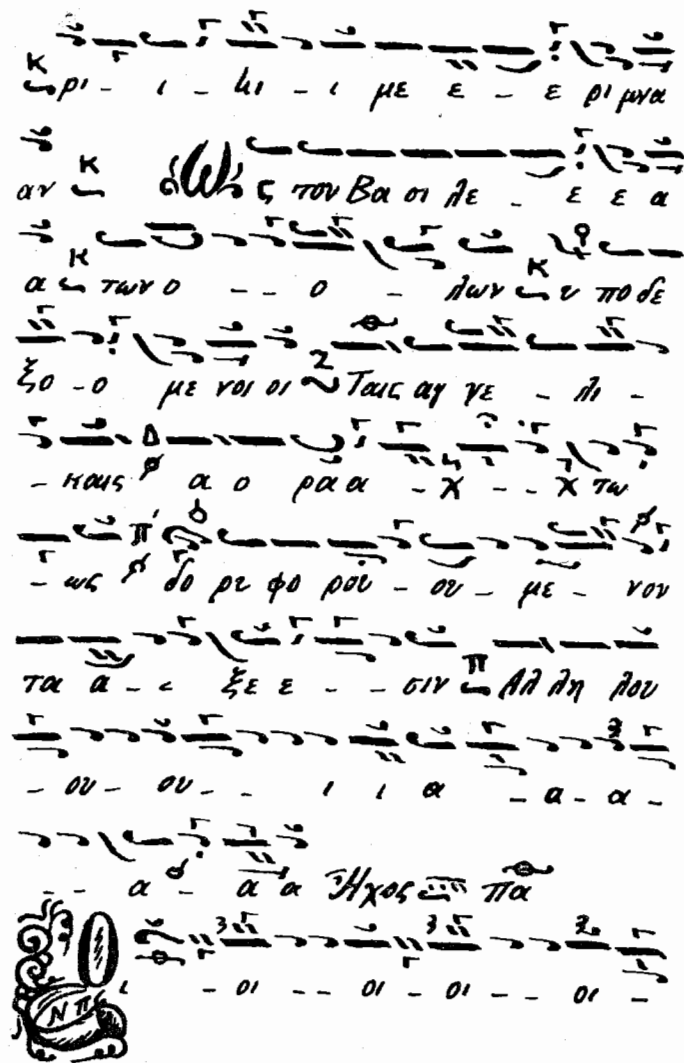 κ
ρι - ι - κι - ι με ε - ε ρι μνα
αν κ Ως τον Βα σι λε - ε ε α
α κ των ο - - ο - λων κ υ πο δε
ξο - ο με νοι οι Ταις αγ γε - λι -
- καις Δ α ο ρα α - χ - - χ τω
- ως π' δο ρυ φο ρου - ου - με - νον
τα α - - ξε ε - - σιν π Αλ λη λου
- ου - ου - - ι ι α - α - α -
- - α - α α Ήχος πα
Ν π ι - οι - - οι - οι - - οι -